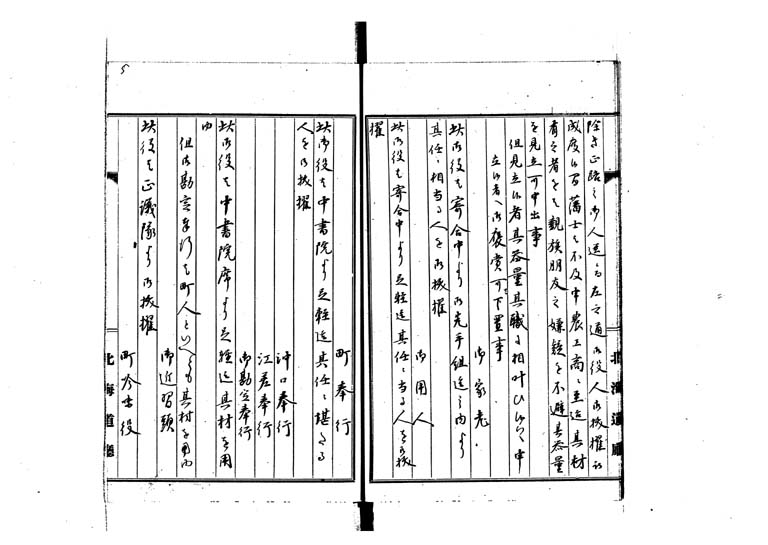 除キ正路之御人選ニ而左之通御役人御抜擢被
成度候間藩士ハ不及申農工商ニ至迄其材
有之者ハ親族朋友之嫌疑を不避其器量
を見立可申出事
但見立候者其器量其職ニ相叶ひ候ハヽ申
立候者ヘ御褒賞可下置事
御家老
此御役ハ寄合中より御先手組迄之内より
其任ニ相当る人を御抜擢
御用人
此御役ハ寄合中より足軽迄其任ニ当る人を御抜
擢
町奉行
此御役ハ中書院より足軽迄其任ニ堪たる
人を御抜擢
沖口奉行
江差奉行
御勘定奉行
此御役ハ中書院席より足軽迄其材を用
ゆ
但御勘定奉行ハ町人といへとも其材を用ゆ
御近習頭
此役ハ正議隊より御抜擢
町吟味役
北海道廳
北海道廳
5